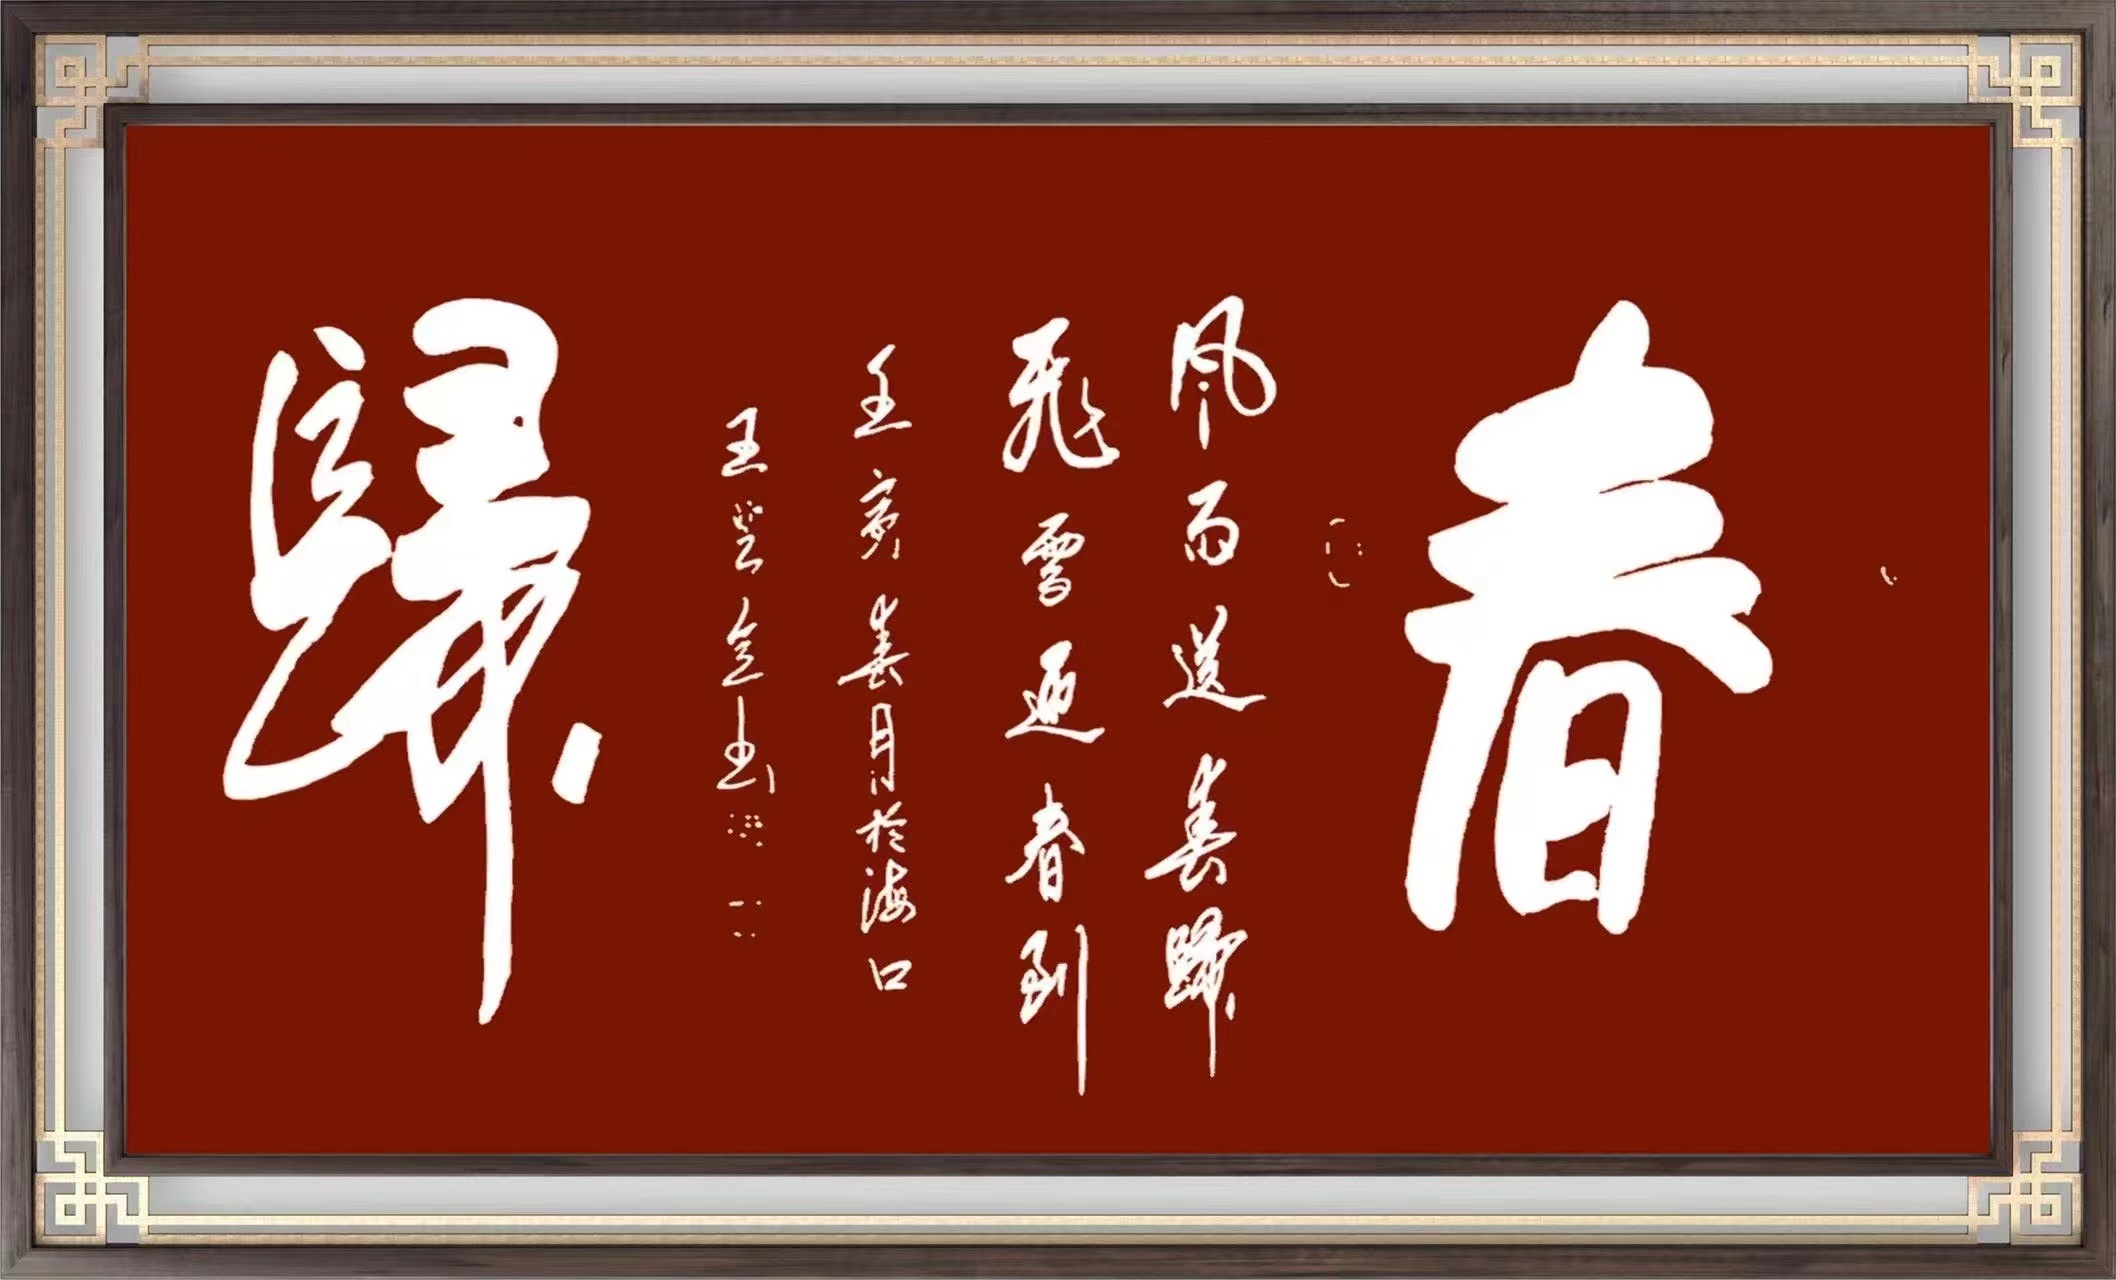 春
风雨送春歸
飛雪迎春到
壬寅春月於海口
王
歸